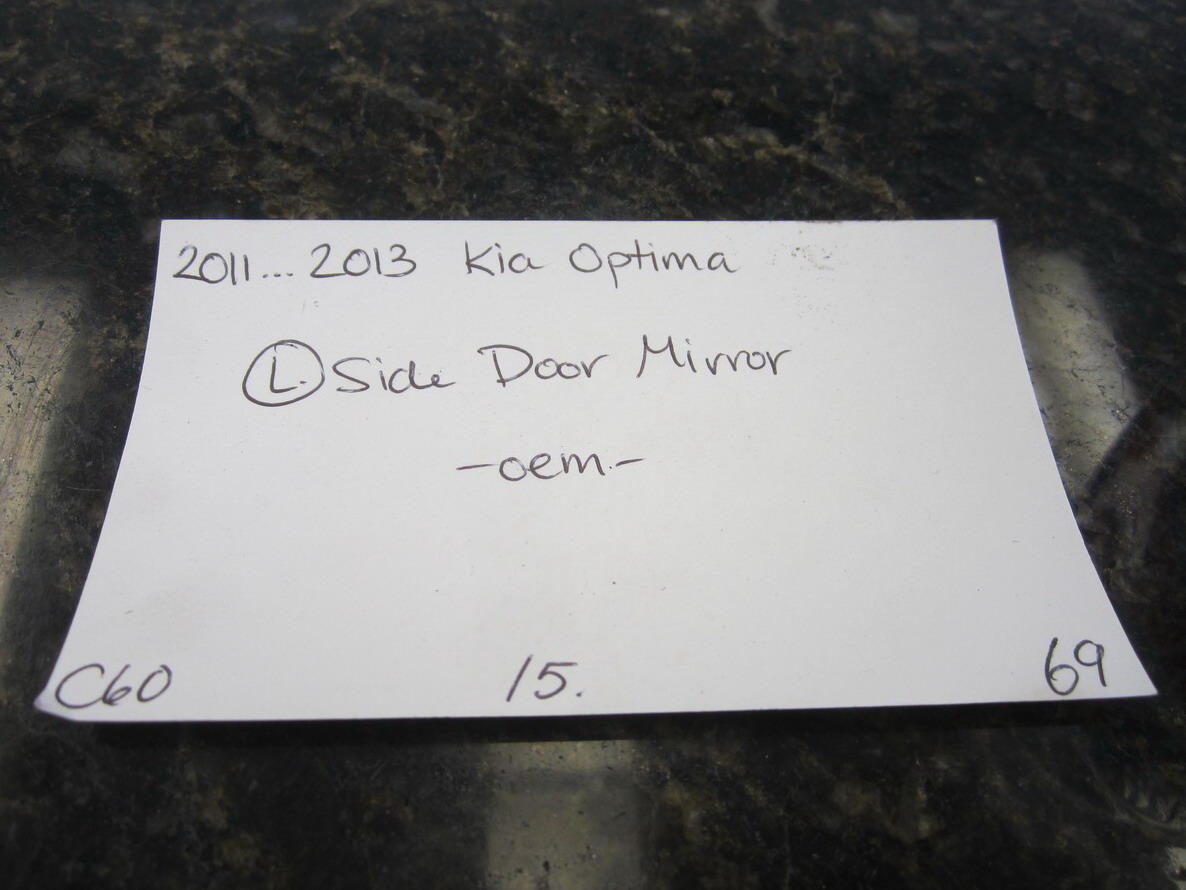 2011... 2013 Kia Optima
L. Side Door Mirror
-oem.-
C60 15. 69